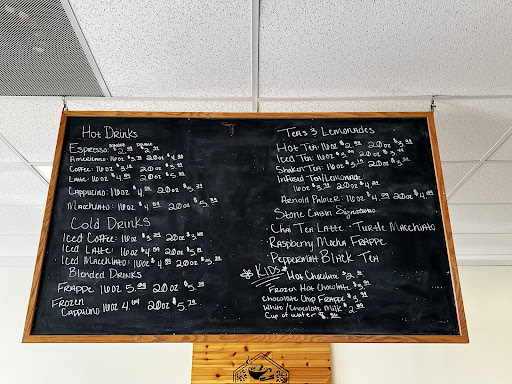 Hot Drinks
Espresso: Single $2. Double $2.
Americano: 16oz $3. 20oz $4.
Coffee: 16oz $3. 20oz $3.
Latte: 16oz $4. 20oz $5.
Cappucino: 16oz $4. 20oz $5.
Macchiato: $4. 20oz $5.
Cold Drinks
Iced Coffee: 16oz $3. 20oz $3.
Iced Latte: 16oz $4. 20oz $5.
Iced Macchiato: 16oz $4. 20oz $5.
Blended Drinks
Frappe 16oz 5. 20oz $5.
Frozen
Cappucino 16oz 4. 20oz $5.
Teas & Lemonades
Hot Tea: 16oz $2. 20oz $3.
Iced Tea: 16oz $3. 20oz $3.
Shaken Tea: 16oz $3. 20oz $3.
Infused Tea/Lemonade
16oz $3. 20oz $4.
Arnold Palmer: 16oz $4. 20oz $4.
Stone Cabin Signatures
Chai Tea Latte · Turtle Macchiato
Raspberry Mocha Frappe
Peppermint Black Tea
Kids
Hot Chocolate $2.
Frozen Hot Chocolate $3.
Chocolate Chip Frappe $3.
White/Chocolate Milk $2.
Cup of Water $.